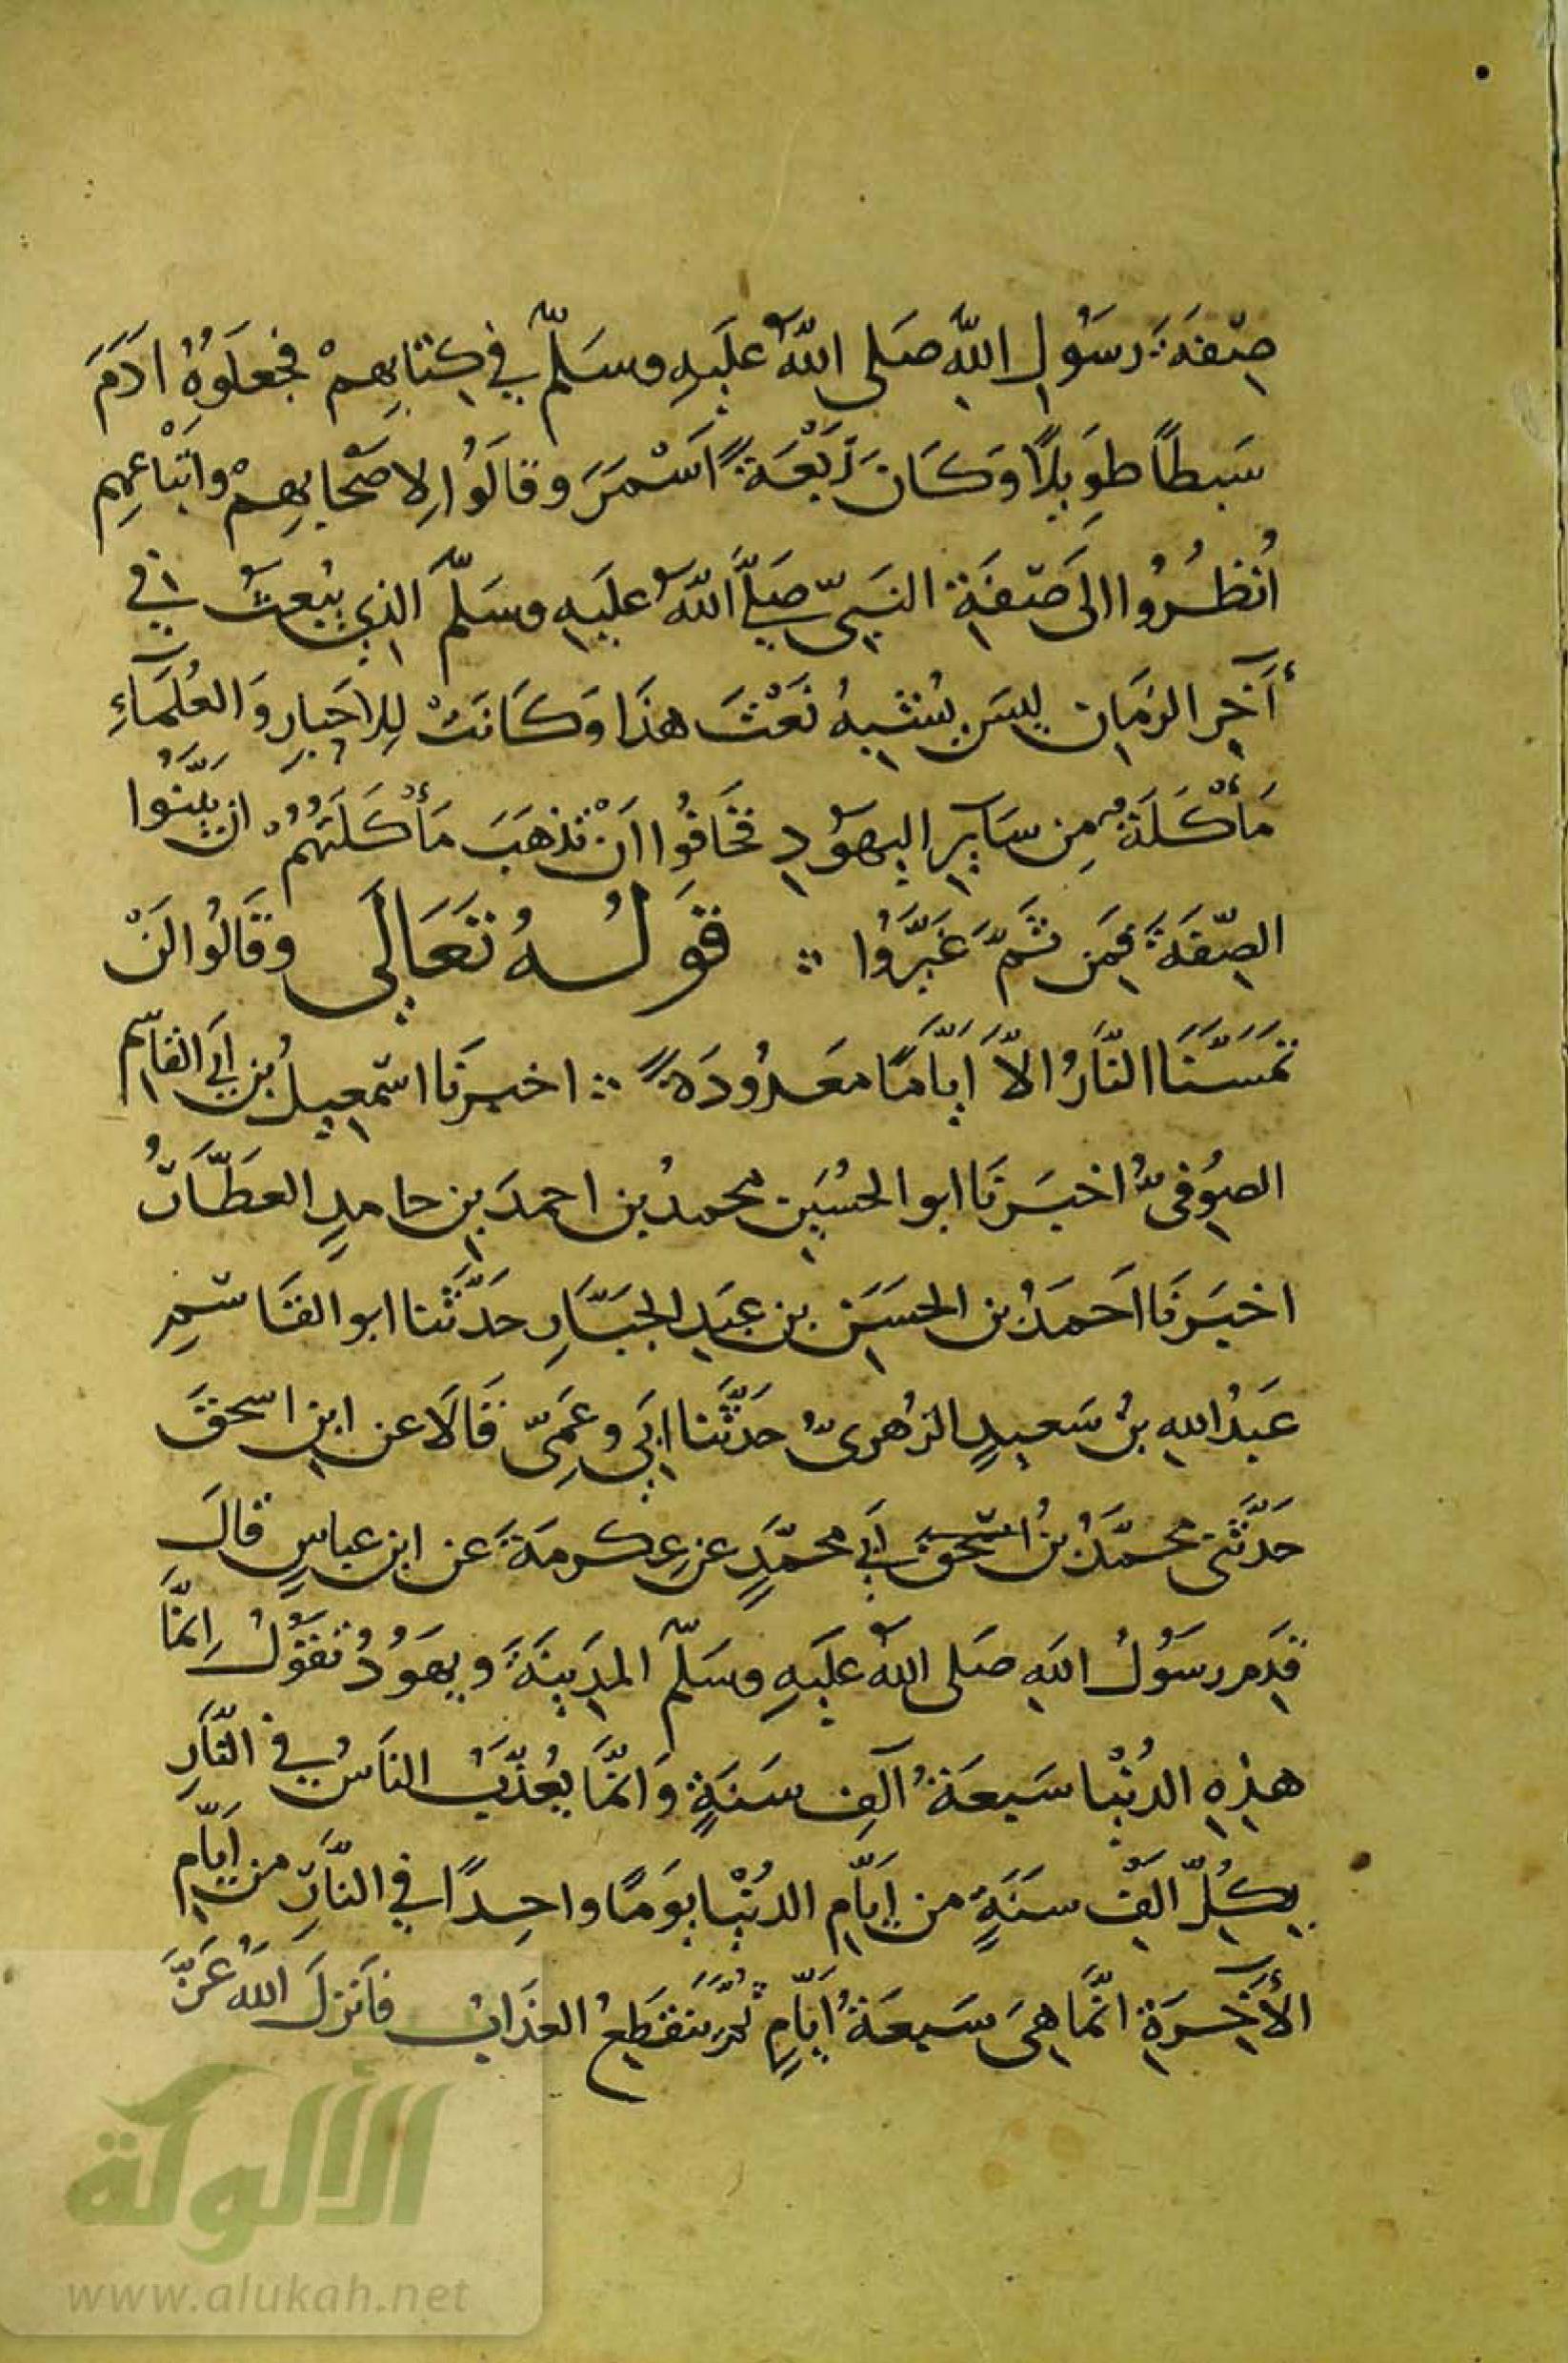 صِفَةَ رسَوُلِ اللهِ صَلى اللهُ علَيهِ وسَلّم في كِتابِهِمْ فجعلَوُهُ ادَمَ
سَبطاً طوِيلاً وكَانَ رَبْعَةً اسْمَرَ وقالَوُا لِاصْحابِهِمْ واتبْاعِهِم
اُنظُرُوا الى صِفَةِ النبَيّ صَلَّى اللهُ علَيهِ وسَلّمَ الذِي يُبعثُ في
آخِرِ الزمَانِ ليسَ يُشبِهُ نَعْتَ هذَا وَكَانَتْ لِلاحبَارِ وَالعُلَمَآءِ
مَأْكَلَةٌ مِن سَايِرِ اليهَوُدِ فخَافُوا اَنْ تذهَبَ مَأْكَلَتهُمُ انْ بَيَّنُوا
الصِّفَةَ فمِن ثَمَّ غَيَّرُوا ∴ قوَلُهُ تعَالَى وقَالُوا لَنْ
تمَسَّنَا النَّارُ الاَّ ايَّامًا معَدُودَةً ∴ اخبرَنَا اسْمعِيلُ بن ابَي القاسِم
الصوُفىُّ اخبَرنَا ابو الحُسَينِ محمدُ بن احمدَ بنِ حامدٍ العَطَّارُ
اخبَرنَا احَمَدُ بن الحسَنِ بن عبَدِ الجَبَّارِ حدَّثَنا ابو القَاسِمِ
عَبدُ اللهِ بنُ سَعيدٍ الزهُرىُّ حدَثَّنا ابَي وعَمِىّ قَالَا عن ابنِ اسحقَ
حَدَّثَنى محمَّدُ بنُ اسْحقَ ابَي محمَّدٍ عن عِكرمَةَ عن ابنِ عباسٍ قالَ
قدِمَ رسَوُلُ اللهِ صَلى اللهُ علَيهِ وسَلّم المدِينَةَ ويهَوُدُ تقَوُلُ اِنمَّا
هذِهِ الدُنْيا سَبعَةُ آلَافِ سنَةٍ وَانمَّا يُعذَّبُ الناسُ في النَّارِ
بِكُلِّ الَفِ سنَةٍ من ايَّامِ الدُنْيا يوَمًا واحِدًا في النَّارِ من ايَّامِ
الأخِرَةِ انمَّا هِىَ سَبعَةُ ايَّامٍ ثُمَّ ينَقطِعُ العذَابُ فاَنزلَ اللهُ عَزَّ
الألوكة
www.alukah.net